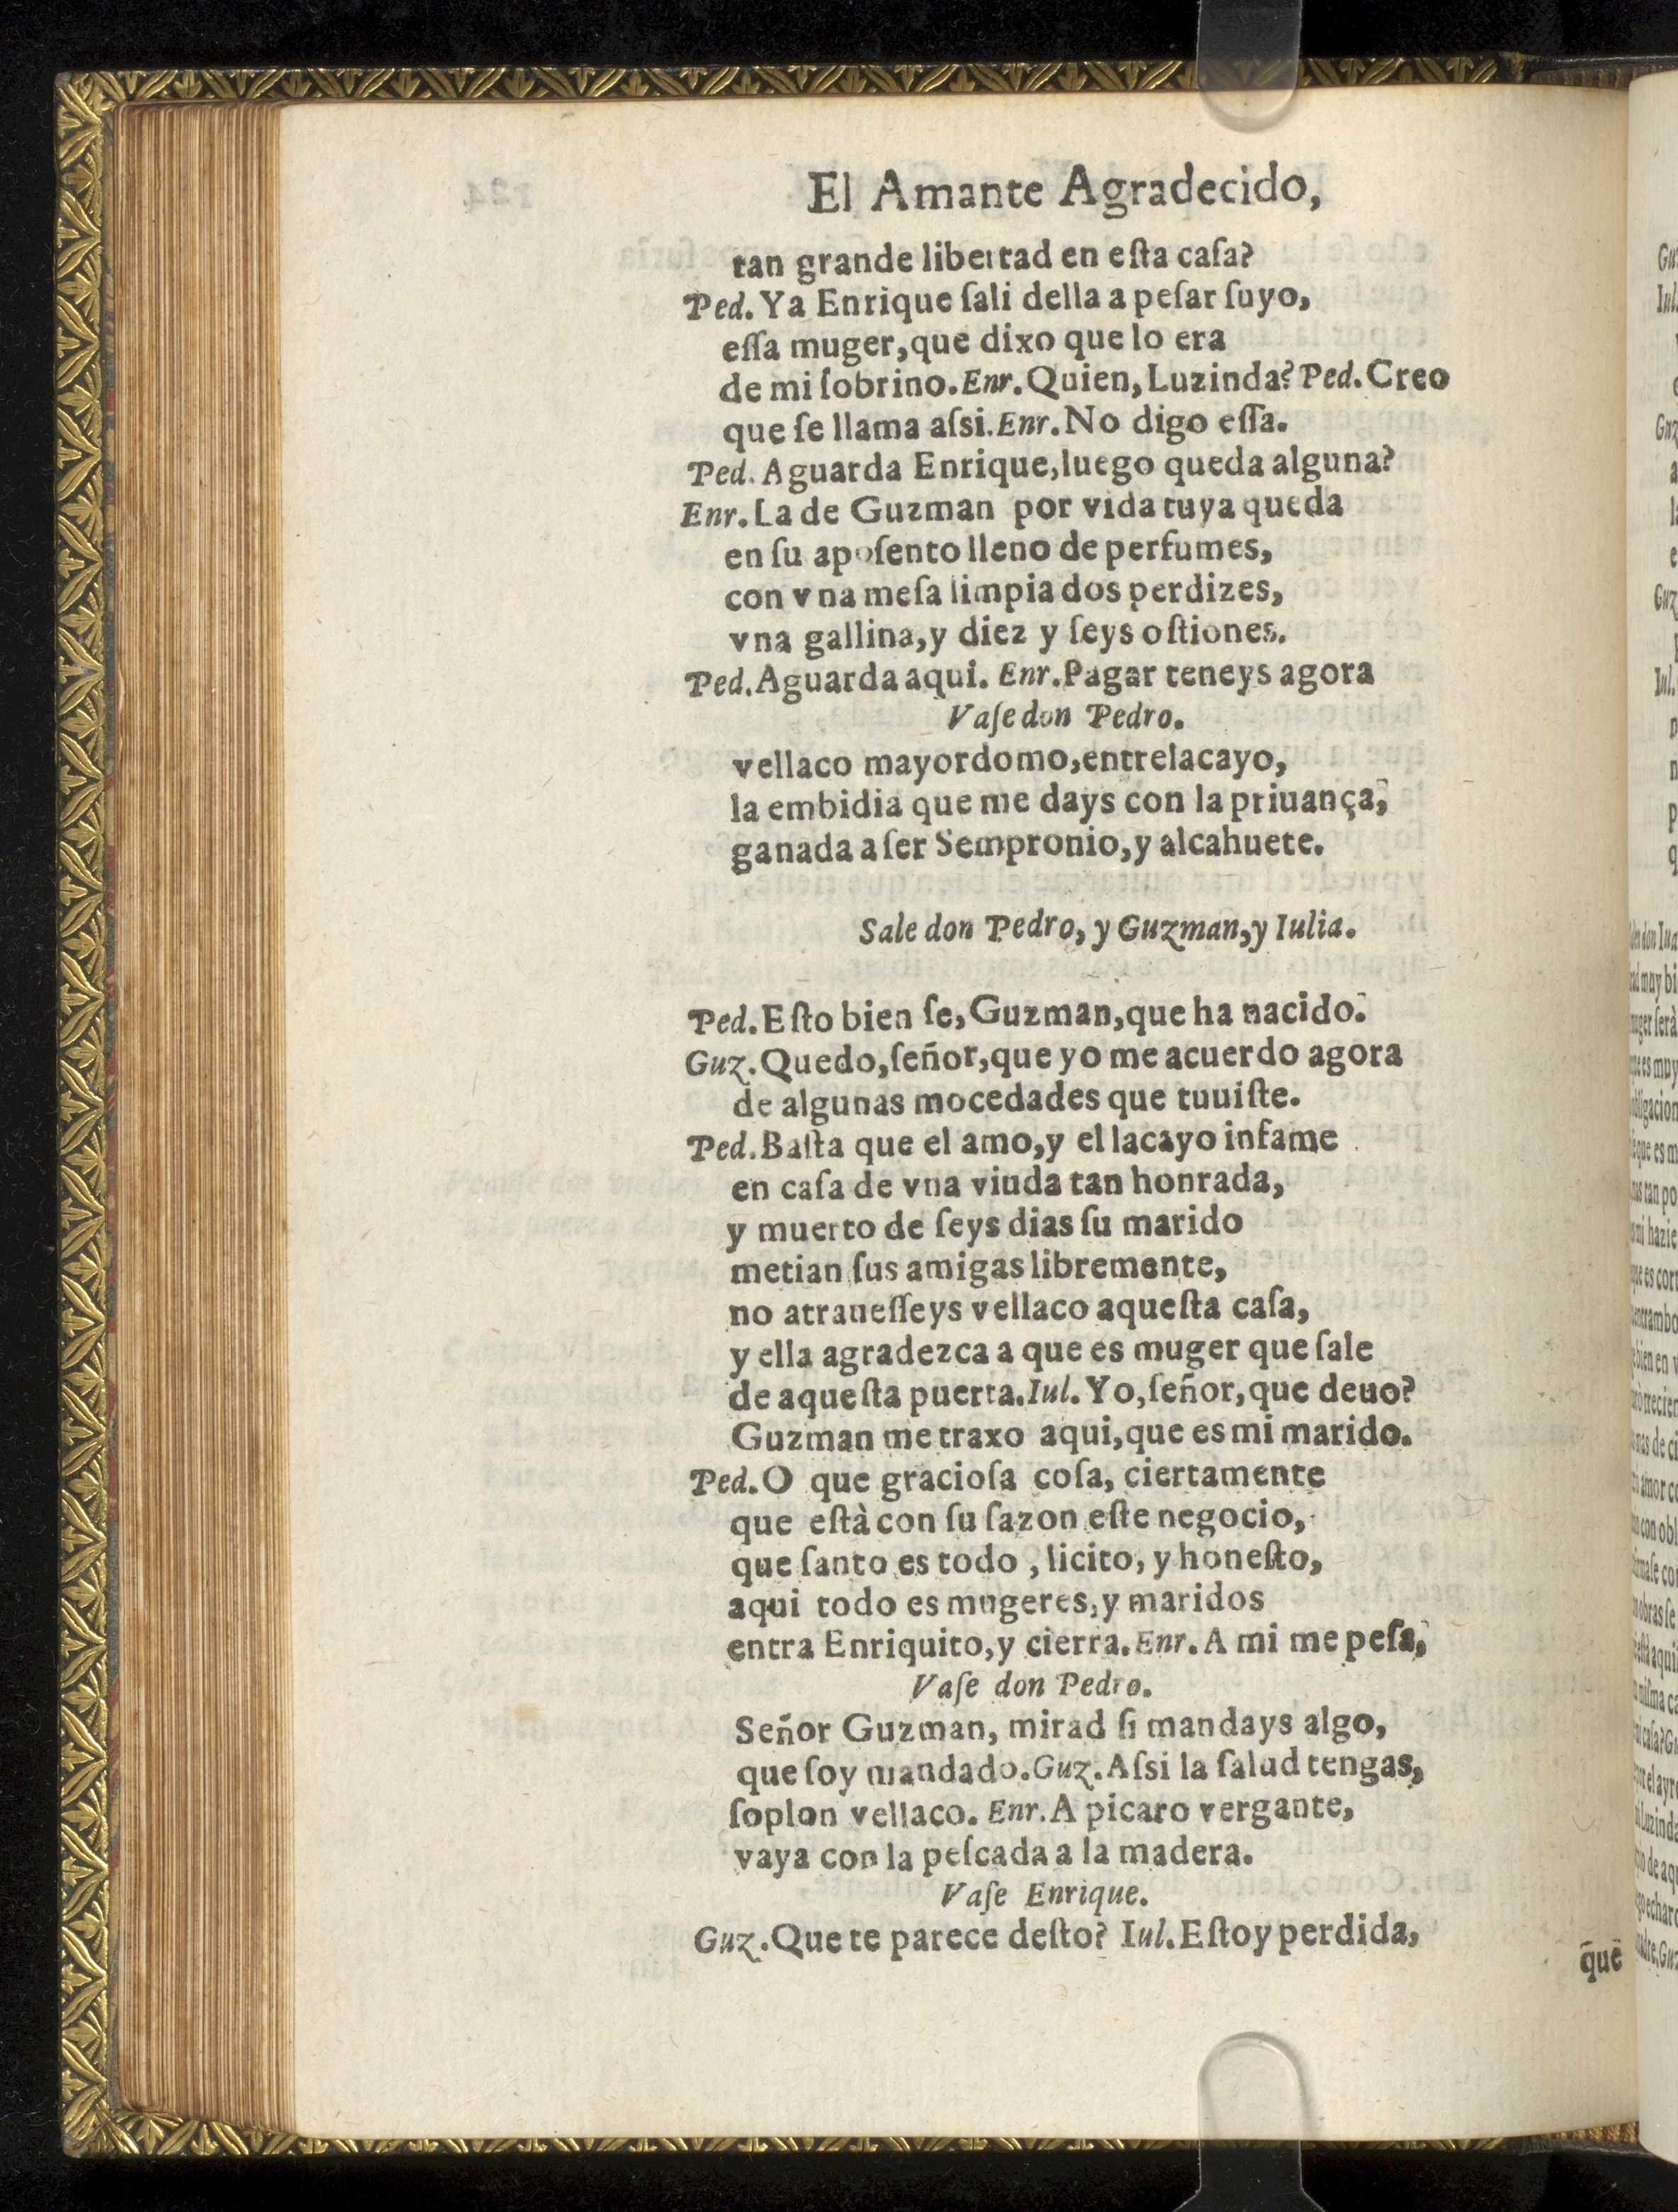 El Amante Agradecido,
tan grande libertad en eſta caſa?
Ped. Ya Enrique ſali della a peſar ſuyo,
eſſa muger, que dixo que lo era
de mi ſobrino. Enr. Quien, Luzinda? Ped. Creo
que ſe llama aſsi. Enr. No digo eſſa.
Ped. Aguarda Enrique, luego queda alguna?
Enr. La de Guzman por vida tuya queda
en ſu apoſento lleno de perfumes,
con vna meſa limpia dos perdizes,
vna gallina, y diez y ſeys oſtiones.
Ped. Aguarda aqui. Enr. Pagar teneys agora
Vaſe don Pedro.
vellaco mayordomo, entrelacayo,
la embidia que me days con la priuança,
ganada a ſer Sempronio, y alcahuete.
Sale don Pedro, y Guzman, y Iulia.
Ped. Eſto bien ſe, Guzman, que ha nacido.
Guz. Quedo, ſeñor, que yo me acuerdo agora
de algunas mocedades que tuuiſte.
Ped. Baſta que el amo, y el lacayo infame
en caſa de vna viuda tan honrada,
y muerto de ſeys dias ſu marido
metian ſus amigas libremente,
no atraueſſeys vellaco aqueſta caſa,
y ella agradezca a que es muger que ſale
de aqueſta puerta. Iul. Yo, ſeñor, que deuo?
Guzman me traxo aqui, que es mi marido.
Ped. O que gracioſa coſa, ciertamente
que eſtà con ſu ſazon eſte negocio,
que ſanto es todo, licito, y honeſto,
aqui todo es mugeres, y maridos
entra Enriquito, y cierra. Enr. A mi me peſa,
Vaſe don Pedro.
Señor Guzman, mirad ſi mandays algo,
que ſoy mandado. Guz. Aſsi la ſalud tengas,
ſoplon vellaco. Enr. A picaro vergante,
vaya con la peſcada a la madera.
Vaſe Enrique.
Guz. Que te parece deſto? Iul. Eſtoy perdida,
que